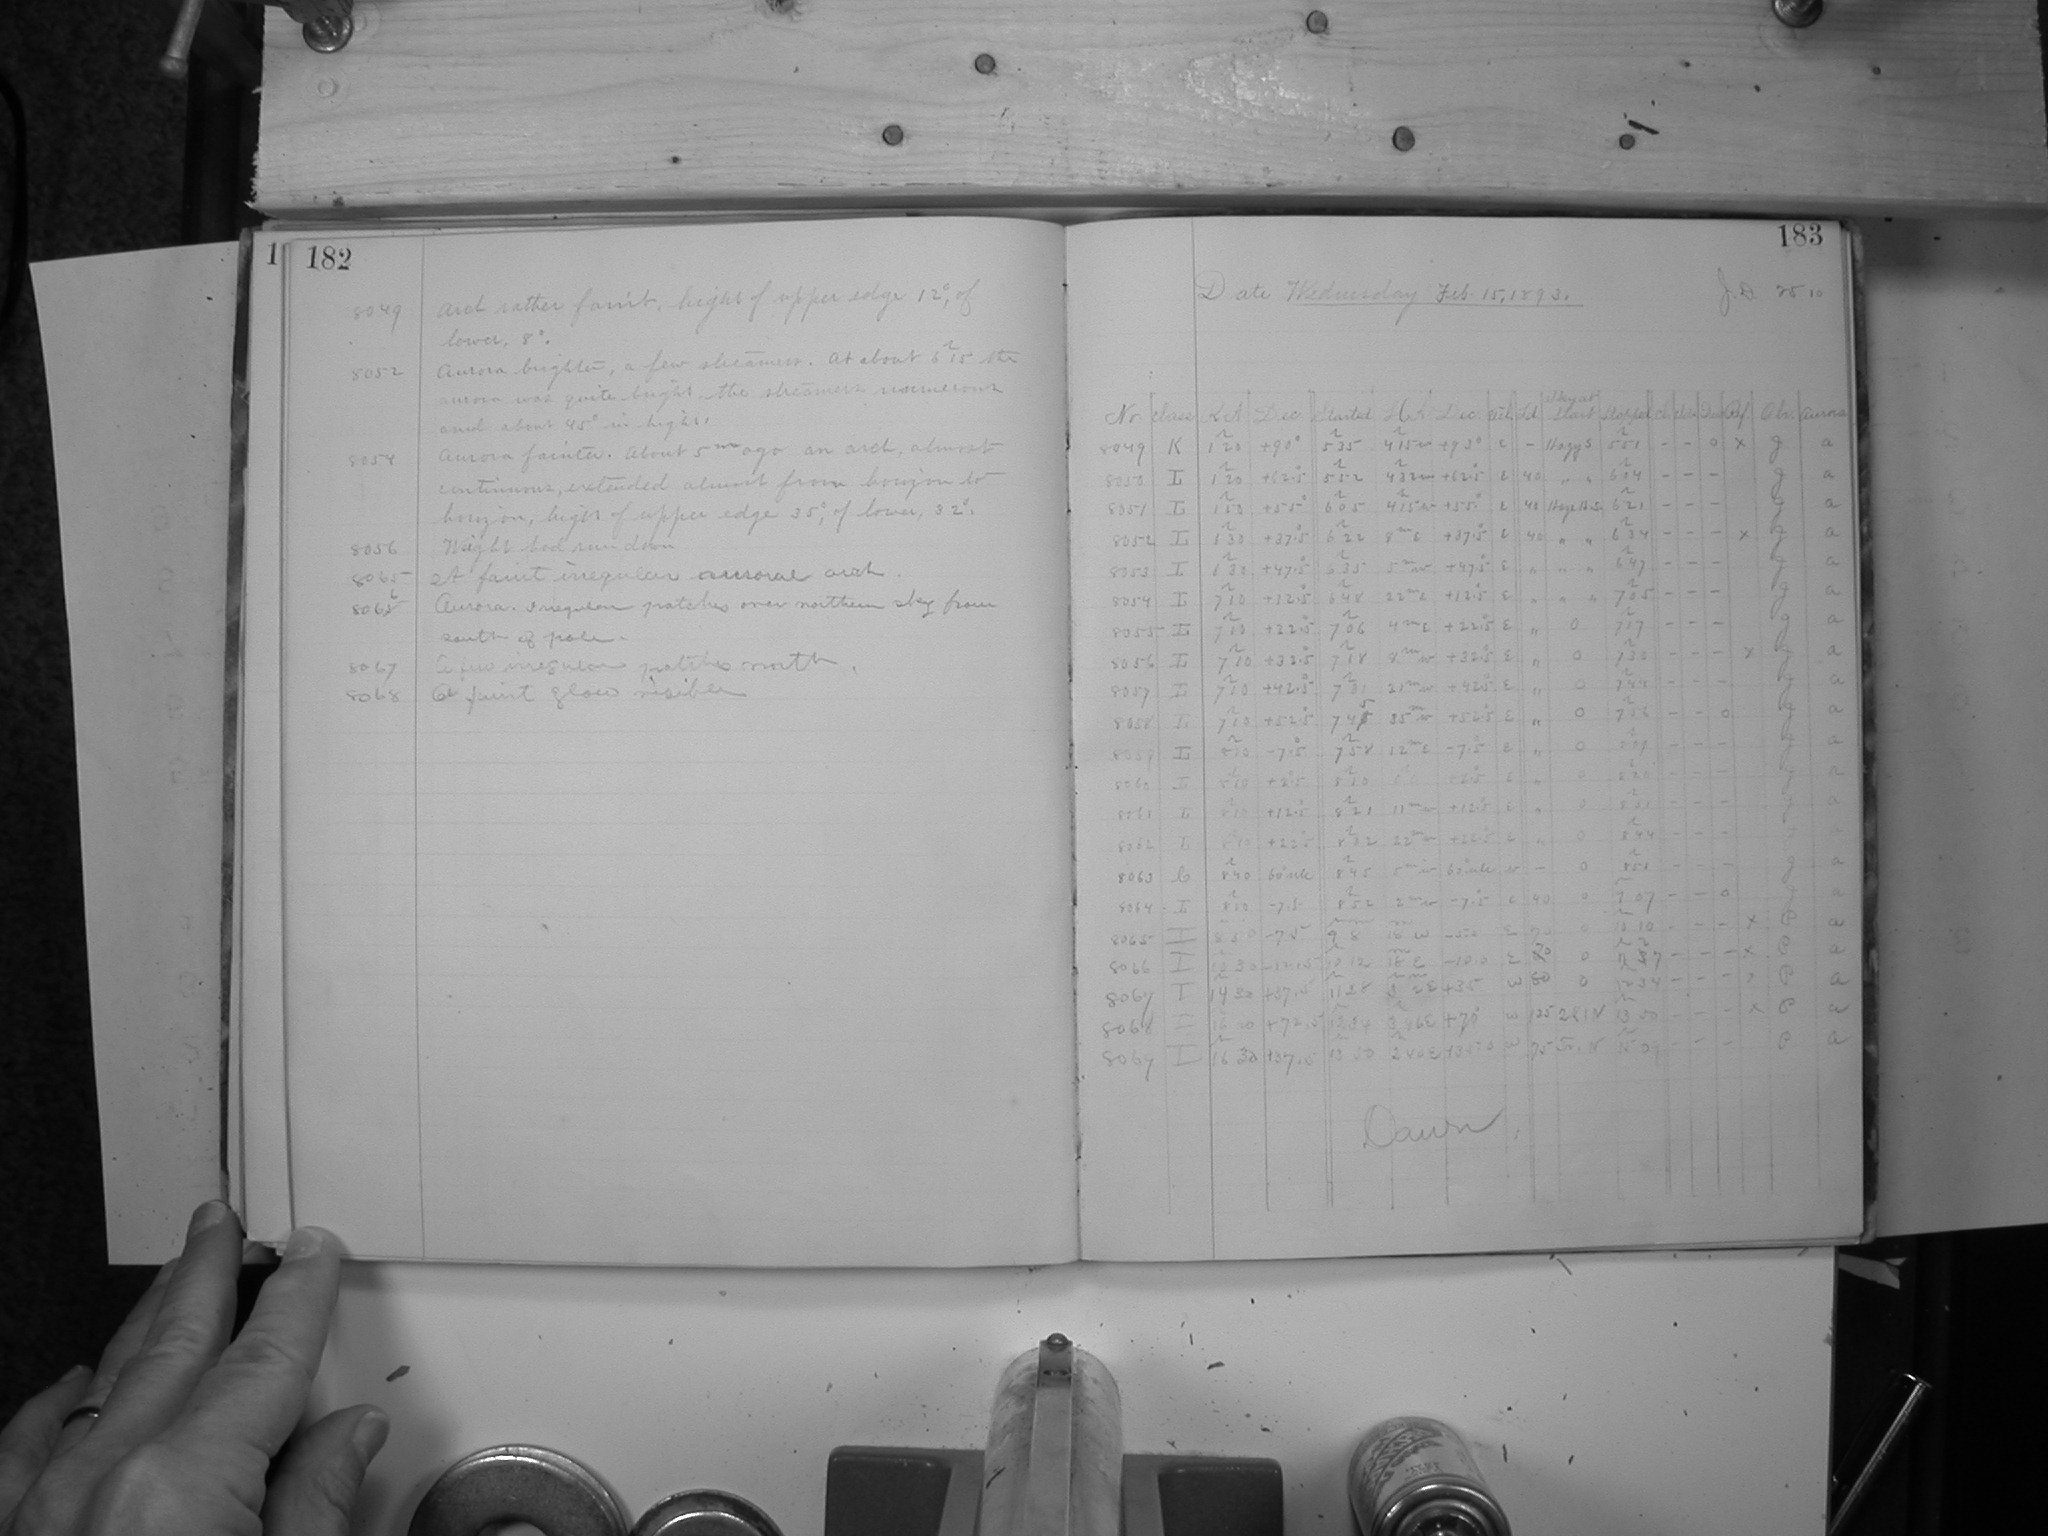 1
182
8049 Arch rather faint, height of upper edge 12°, of
lower, 8°.
8052 Aurora brighter, a few streamers. At about 6h15 the
aurora was quite bright, the streamers numerous
and about 45° in height.
8054 Aurora fainter. About 5m ago an arch, almost
continuous, extended almost from horizon to
horizon, height of upper edge 35°, of lower, 32°.
8056 Weight had run down
8065 A faint irregular auroral arch.
8066 Aurora. Irregular patches over northern sky from
south of pole.
8067 A few irregular patches north.
8068 A faint glow visible
183
Date Wednesday Feb. 15, 1893. J.D. 2510
No. Class R.A. Dec. Started H.A. Dec. Sky at Start Stopped Ref Obs. Aurora
8049 K 1h20 +90° 5h35 415w +93° E - Hazy S 5h51 - - 0 x g a
8050 I 1h20 +62.5 5h52 432w +62.5 E 40 " " 6h04 - - - g a
8051 I 1h50 +55° 6h05 415w +55° E 40 6h21 - - - g a
8052 I 6h30 +37.5 6h22 8m E +37.5 E 40 " " 6h34 - - - x g a
8053 I 6h30 +47.5 6h35 5m w +47.5 E " " " 6h47 - - - g a
8054 I 7h10 +12.5 6h48 22m E +12.5 E " " " 7h05 - - - g a
8055 I 7h10 +22.5 7h06 4m E +22.5 E " 0 7h17 - - - g a
8056 I 7h10 +32.5 7h18 8m w +32.5 E " 0 7h30 - - - x g a
8057 I 7h10 +42.5 7h31 21m w +42.5 E " 0 7h44 - - - g a
8058 I 7h10 +52.5 7h45 35m w +52.5 E " 0 7h56 - - 0 g a
8059 I 8h10 -7.5 7h58 12m E -7.5 E " 0 8h09 - - - g a
8060 I 8h10 +2.5 8h10 +2.5 E " 0 8h20 - - - g a
8061 I 8h10 +12.5 8h21 11m w +12.5 E " 0 8h31 - - - g a
8062 I 8h10 +22.5 8h32 22m w +22.5 E " 0 8h44 - - -
8063 C 8h40 8h45 5m w w - 0 8h51 - - - g a
8064 I 8h50 -7.5 8h52 2m w -7.5 E 40 0 9h07 - - 0 g a
8065 I 8 50 -7.5 9 8 18 w E 0 10 10 - - - x P a
8066 I 10 30 10 12 18 E -10.0 E 0 - - - x P a
8067 I 14 30 +37.5 11 28 +35 w 60 0 12 34 - - - x P a
8068 I +72.5 12 34 3 46E +70 w 125 13 50 - - - x P a
8069 I 16 30 +37.5 13 50 2 40E w 75 15 09 - - - P a
Dawn.